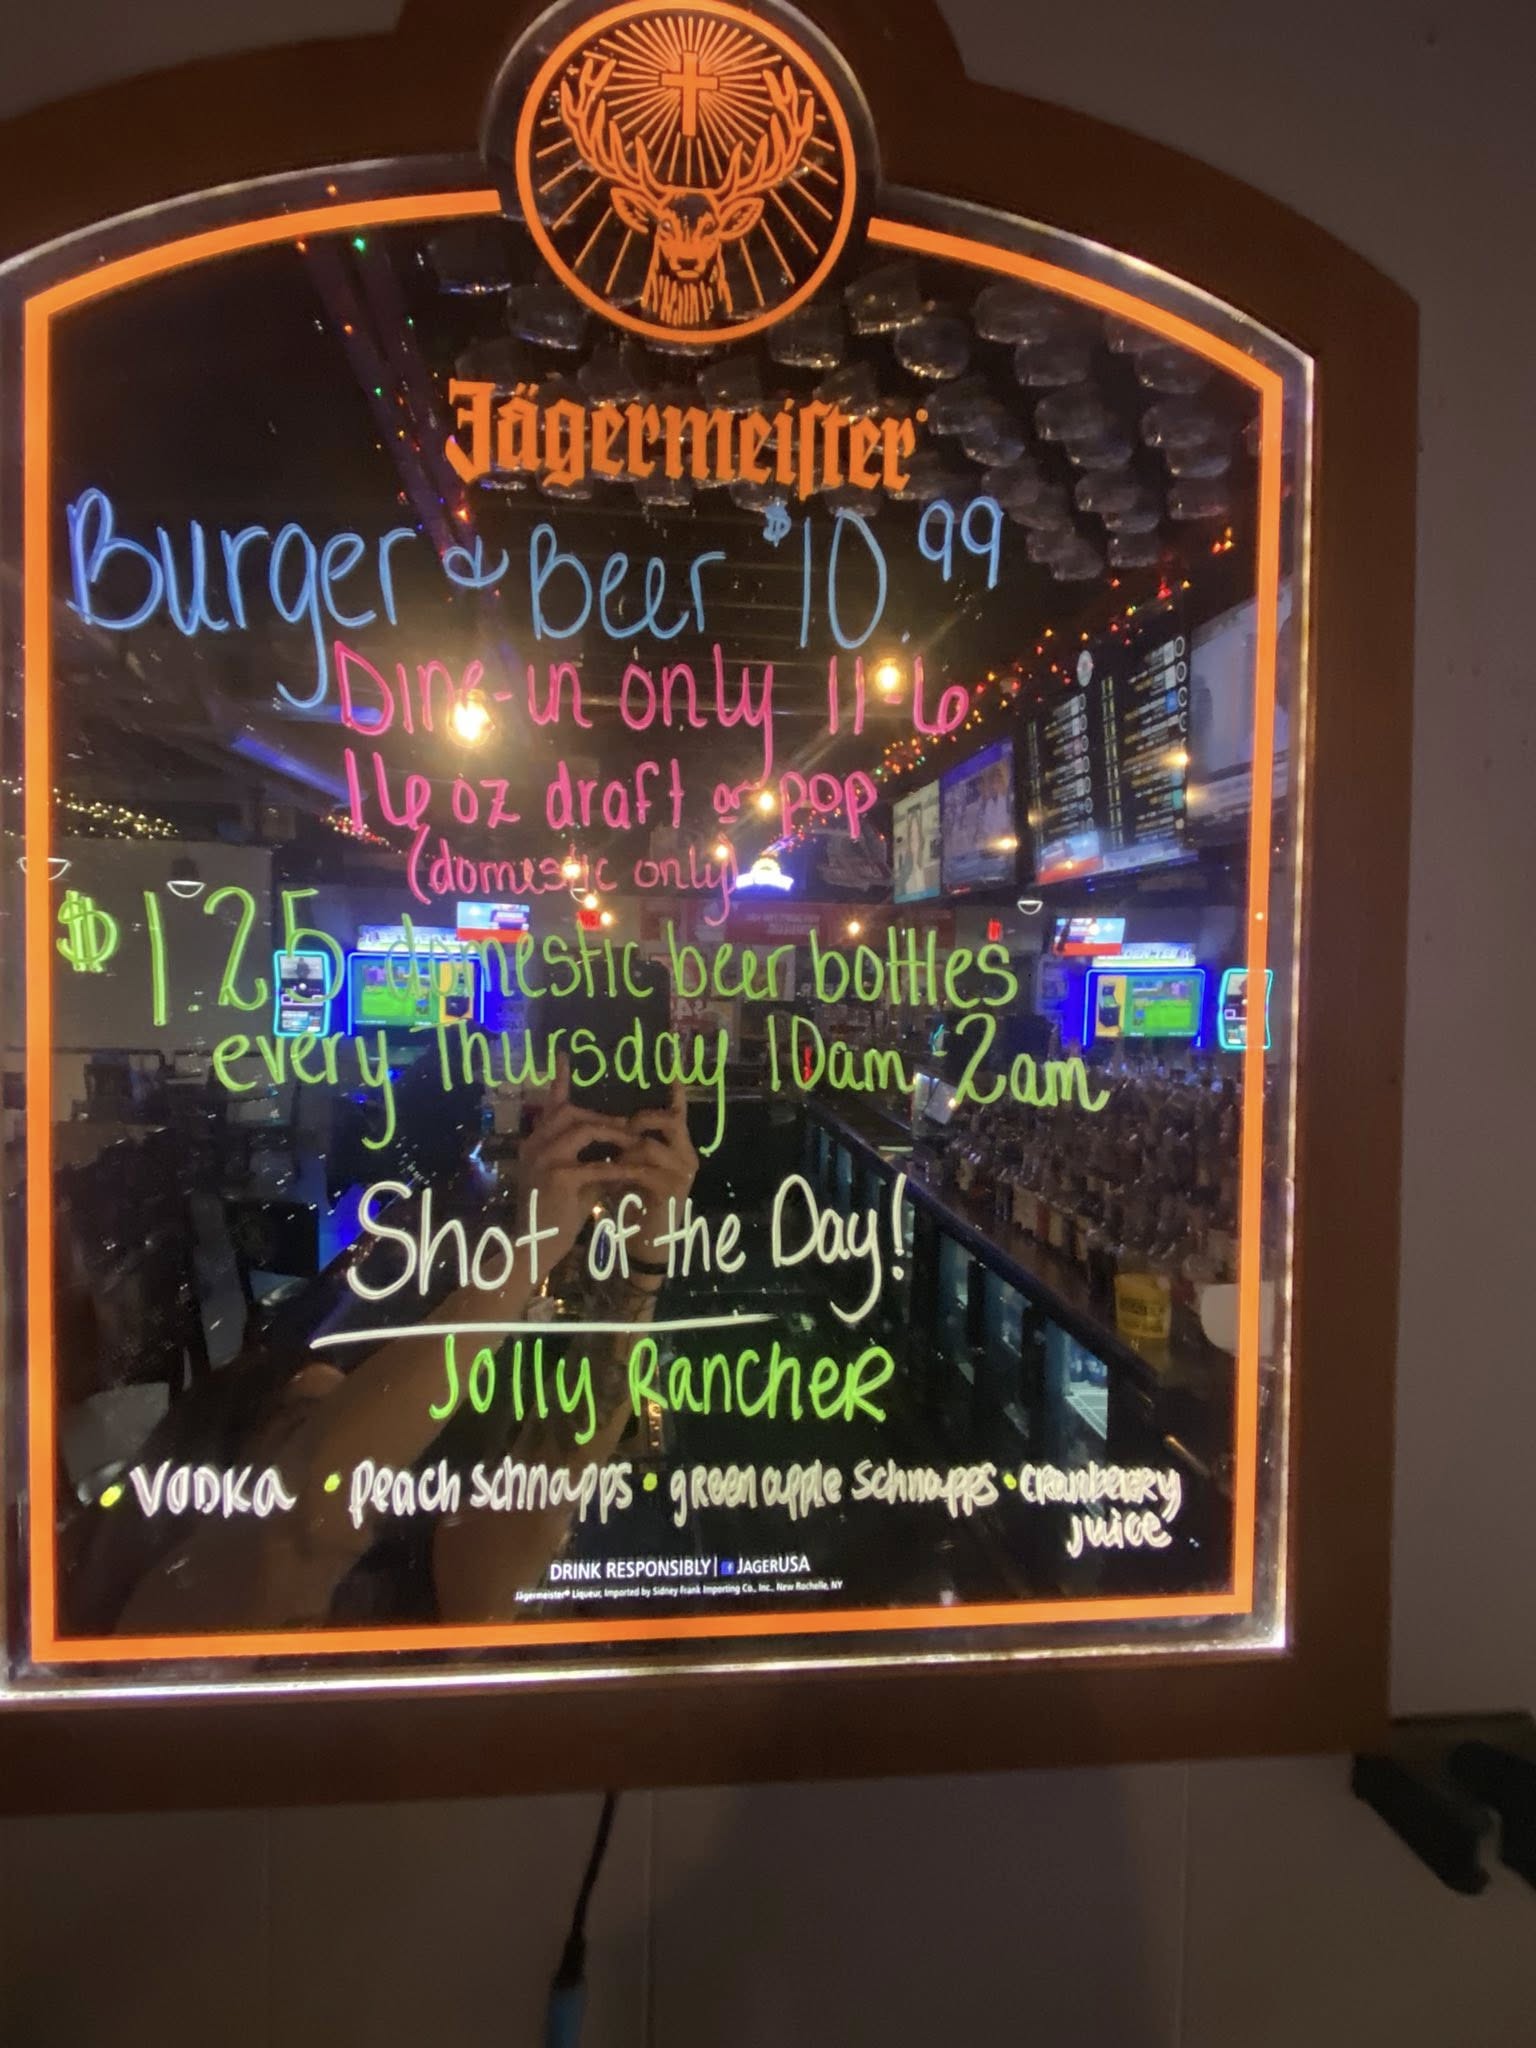 Jägermeister®
Burger & Beer $10.99
Dine-in only 11-6
16 oz draft or pop
(domestic only)
$1.25 domestic beer bottles
every Thursday 10am-2am
Shot of the Day!
Jolly RancheR
• VODKa • Peach schnapps • gReen apple schnapps • cRanbeRRy
juice
DRINK RESPONSIBLY | f JAGERUSA
Jägermeister® Liqueur, Imported by Sidney Frank Importing Co., Inc., New Rochelle, NY